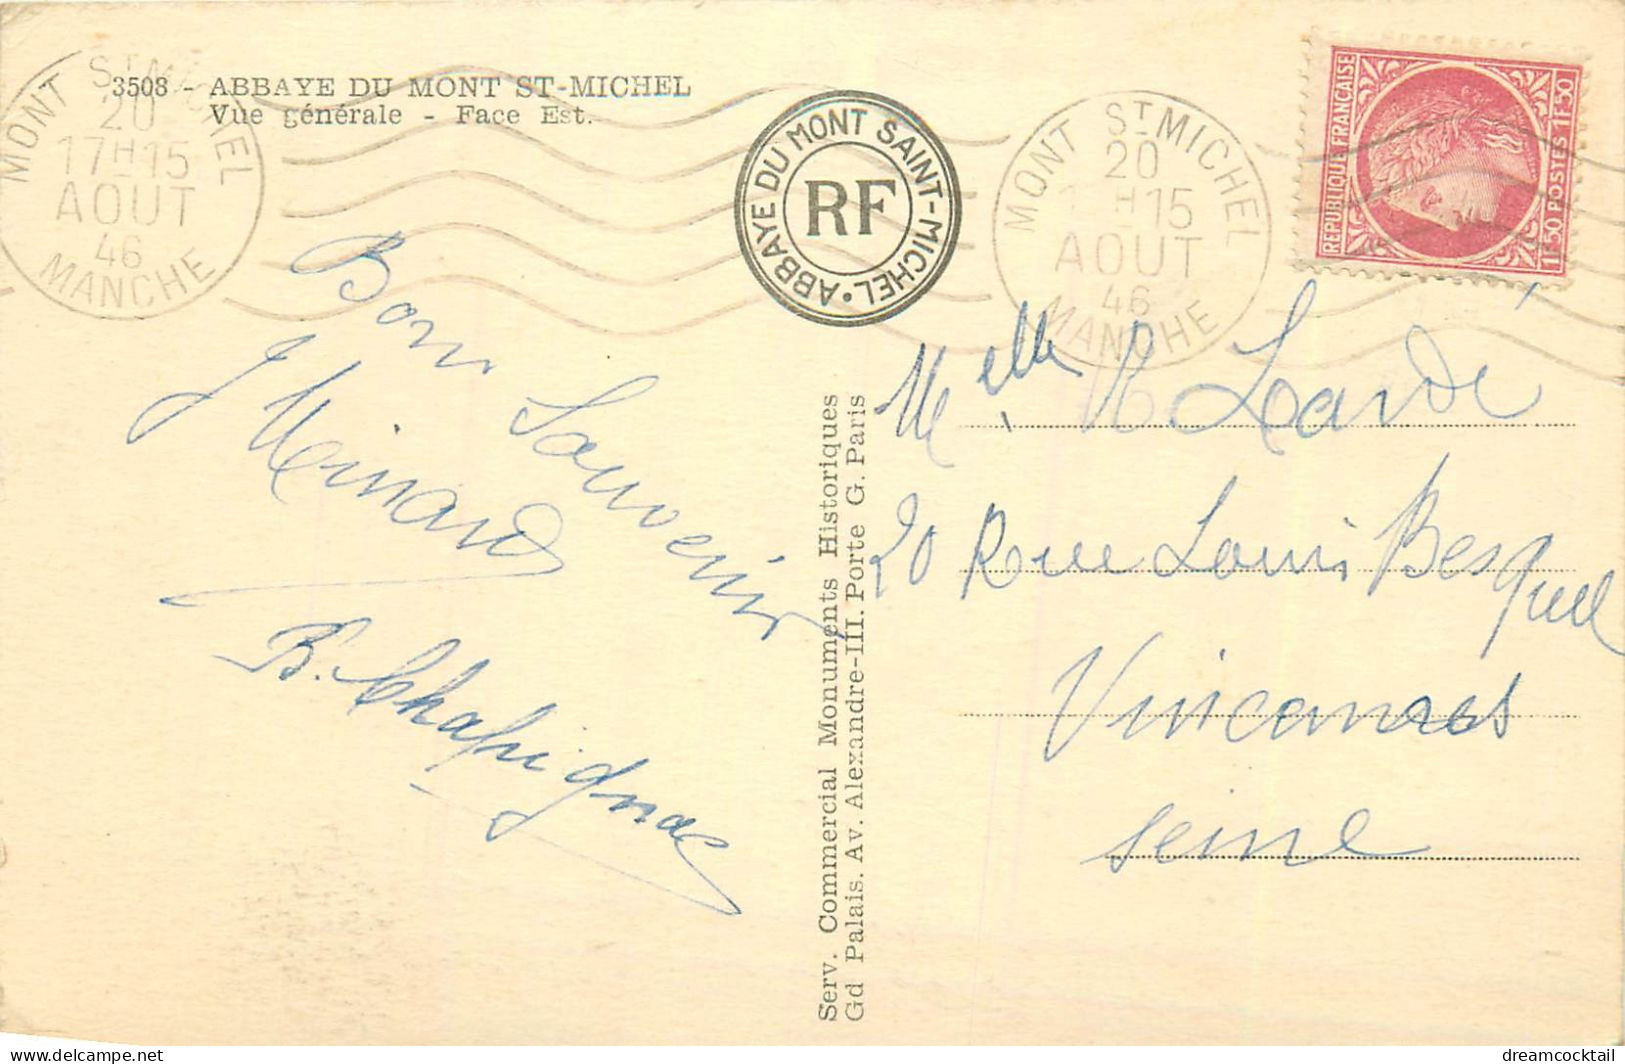 3508 - ABBAYE DU MONT ST-MICHEL
Vue générale - Face Est.
MONT ST MICHEL
20
17H15
AOUT
46
MANCHE
ABBAYE DU MONT SAINT-MICHEL
RF
MONT ST MICHEL
20
1 H15
AOUT
46
MANCHE
REPUBLIQUE FRANCAISE
1F50 POSTES 1F50
Bon Souvenir
J Meinard
B. Chapignac
Serv. Commercial Monuments Historiques
Gd Palais. Av. Alexandre-III. Porte G. Paris
Melle R Lardé
20 Rue Louis Besquel
Vincennes
Seine
delcampe.net
dreamcocktail